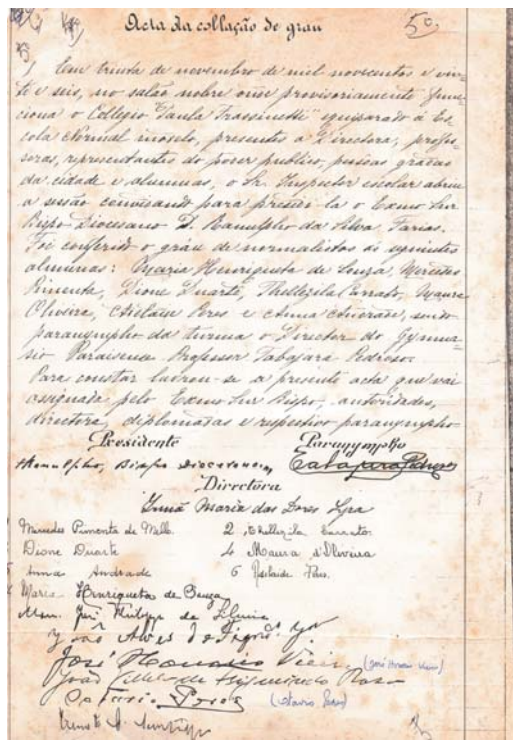 Acta da collação de grau
5º
Em trinta de novembro de mil novecentos e vin-
te e seis, no salão nobre onde provisoriamente func-
ciona o Collegio "Paula Frassinetti" equiparado á Es-
cola Normal modelo, presentes a Directora, profes-
soras, representantes do poder publico, pessoas gradas
da cidade e alumnas, o Sr. Inspector escolar abriu
a sessão convidando para presidi-la o Exmo Snr
Bispo Diocesano D. Ranulpho da Silva Farias.
Foi conferido o gráu de normalistas ás seguintes
alumnas: Maria Henriqueta de Souza, Mercedes
Pimenta, Dione Duarte, Thellezila Carrato, Maura
Oliveira, Adelaide Peres e Anna Andrade, sendo
paranympho da turma o Director do Gymna-
sio Paraisense Professor Tabajara Pedroso.
Para constar lavrou-se a presente acta que vai
assignada pelo Exmo Snr Bispo, autoridades,
directora, diplomadas e respectivo paranympho
Presidente Paranympho
Ranulpho, Bispo Diocesano Tabajara Pedroso
Directora
Irmã Maria das Dores Lyra
Mercedes Pimenta de Mello. 2 Thellezila Carrato.
Dione Duarte 4 Maura d'Oliveira
Anna Andrade 6 Adelaide Peres.
Maria Henriqueta de Souza
Mon. José Philippe da Silveira
João Alves de
José Honorio Vieira (José Honorio Vieira)
João de Figueiredo Rosa
Octavio Peres (Otavio Peres)